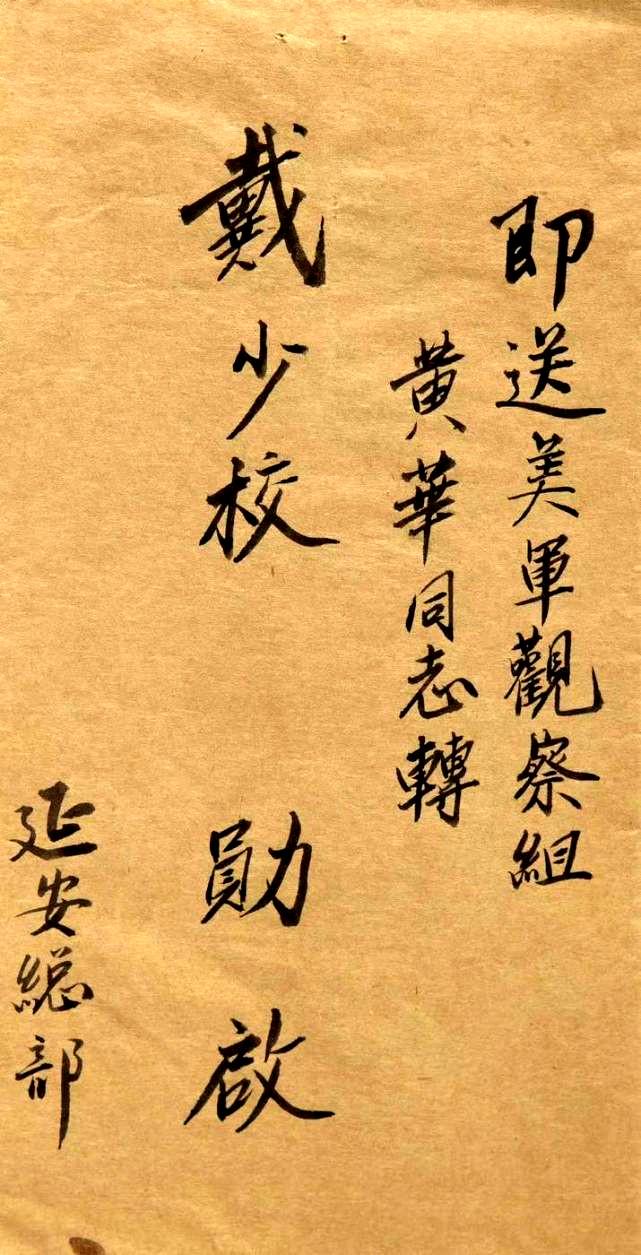 即送美軍觀察組
黄華同志轉
戴少校 勛啟
延安総部